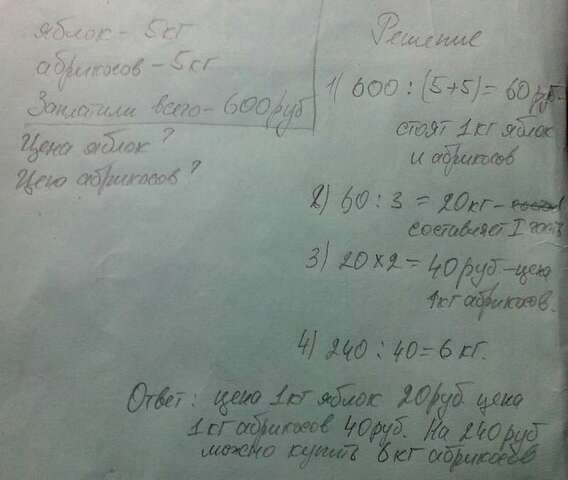 яблок - 5кг
абрикосов - 5кг
Заплатили всего - 600руб
Цена яблок?
Цена абрикосов?
Решение
1) 600 : (5+5) = 60руб -
стоят 1кг яблок
и абрикосов
2) 60 : 3 = 20кг -
составляет I часть
3) 20 × 2 = 40руб - цена
1кг абрикосов.
4) 240 : 40 = 6 кг.
Ответ: цена 1кг яблок 20руб. цена
1кг абрикосов 40руб. На 240руб
можно купить 6кг абрикосов